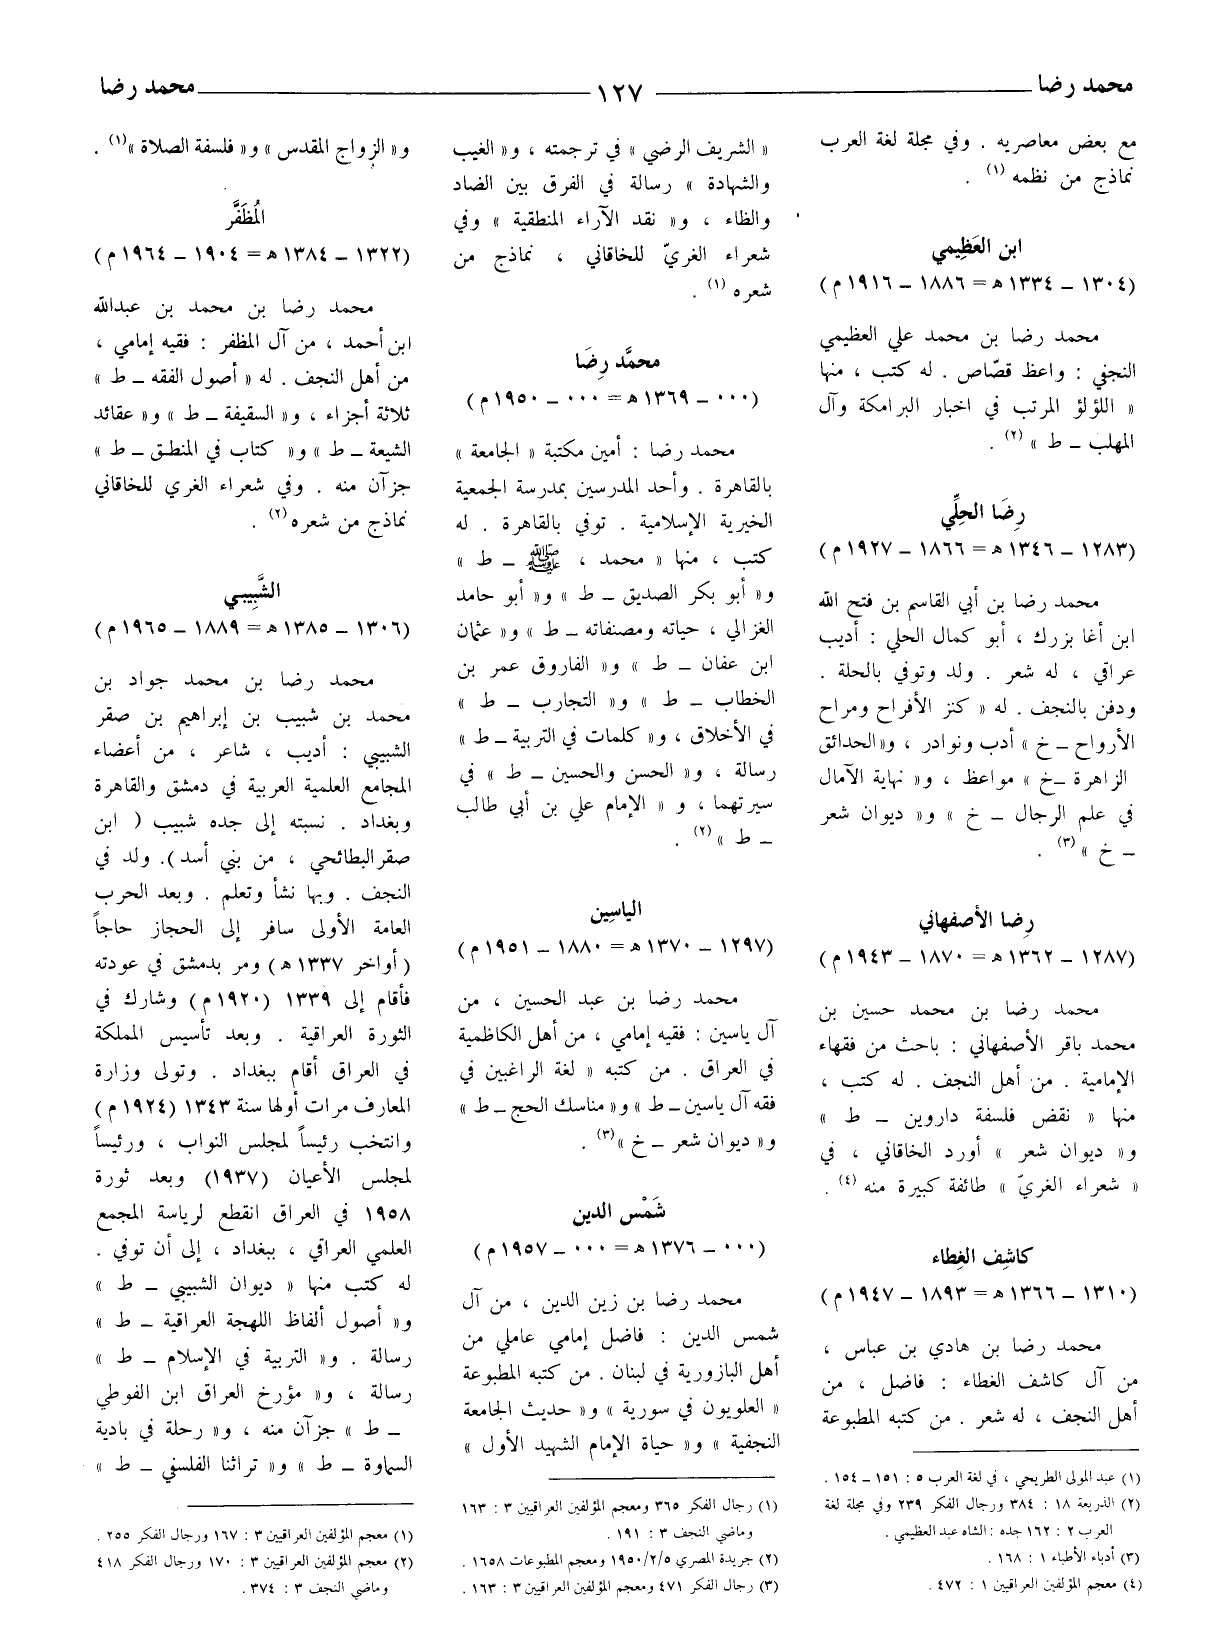 محمد رضا
١٢٧
محمد رضا
مع بعض معاصريه . وفي مجلة لغة العرب
نماذج من نظمه (١) .
ابن العَظِيمي
(١٣٠٤ – ١٣٣٤ ه = ١٨٨٦ – ١٩١٦ م)
محمد رضا بن محمد علي العظيمي
النجفي : واعظ قصّاص . له كتب ، منها
« اللؤلؤ المرتب في اخبار البرامكة وآل
المهلب – ط » (٢) .
رِضَا الحِلِّي
(١٢٨٣ – ١٣٤٦ ه = ١٨٦٦ – ١٩٢٧ م)
محمد رضا بن أبي القاسم بن فتح الله
ابن أغا بزرك ، أبو كمال الحلي : أديب
عراقي ، له شعر . ولد وتوفي بالحلة .
ودفن بالنجف . له « كنز الأفراح ومراح
الأرواح – خ » أدب ونوادر ، و« الحدائق
الزاهرة – خ » مواعظ ، و« نهاية الآمال
في علم الرجال – خ » و« ديوان شعر
– خ » (٣) .
رِضا الأصفهاني
(١٢٨٧ – ١٣٦٢ ه = ١٨٧٠ – ١٩٤٣ م)
محمد رضا بن محمد حسين بن
محمد باقر الأصفهاني : باحث من فقهاء
الإمامية . من أهل النجف . له كتب ،
منها « نقض فلسفة داروين – ط »
و« ديوان شعر » أورد الخاقاني ، في
« شعراء الغريّ » طائفة كبيرة منه (٤) .
كاشِف الغِطاء
(١٣١٠ – ١٣٦٦ ه = ١٨٩٣ – ١٩٤٧ م)
محمد رضا بن هادي بن عباس ،
من آل كاشف الغطاء : فاضل ، من
أهل النجف ، له شعر . من كتبه المطبوعة
(١) عبد المولى الطريحي ، في لغة العرب ٥ : ١٥١ – ١٥٤ .
(٢) الذريعة ١٨ : ٣٨٤ ورجال الفكر ٢٣٩ وفي مجلة لغة
العرب ٢ : ١٦٢ جده : الشاه عبد العظيمي .
(٣) أدباء الأطباء ١ : ١٦٨ .
(٤) معجم المؤلفين العراقيين ١ : ٤٧٢ .
« الشريف الرضي » في ترجمته ، و« الغيب
والشهادة » رسالة في الفرق بين الضاد
والظاء ، و« نقد الآراء المنطقية » وفي
شعراء الغريّ للخاقاني ، نماذج من
شعره (١) .
محمَّد رِضَا
(٠٠٠ – ١٣٦٩ ه = ٠٠٠ – ١٩٥٠ م)
محمد رضا : أمين مكتبة « الجامعة »
بالقاهرة . وأحد المدرسين بمدرسة الجمعية
الخيرية الإسلامية . توفي بالقاهرة . له
كتب ، منها « محمد ، ﷺ – ط »
و« أبو بكر الصديق – ط » و« أبو حامد
الغزالي ، حياته ومصنفاته – ط » و« عثمان
ابن عفان – ط » و« الفاروق عمر بن
الخطاب – ط » و« التجارب – ط »
في الأخلاق ، و« كلمات في التربية – ط »
رسالة ، و« الحسن والحسين – ط » في
سيرتهما ، و « الإمام علي بن أبي طالب
– ط » (٢) .
الياسِين
(١٢٩٧ – ١٣٧٠ ه = ١٨٨٠ – ١٩٥١ م)
محمد رضا بن عبد الحسين ، من
آل ياسين : فقيه إمامي ، من أهل الكاظمية
في العراق . من كتبه « لغة الراغبين في
فقه آل ياسين – ط » و« مناسك الحج – ط »
و« ديوان شعر – خ » (٣) .
شَمْس الدين
(٠٠٠ – ١٣٧٦ ه = ٠٠٠ – ١٩٥٧ م)
محمد رضا بن زين الدين ، من آل
شمس الدين : فاضل إمامي عاملي من
أهل البازورية في لبنان . من كتبه المطبوعة
« العلويون في سورية » و« حديث الجامعة
النجفية » و« حياة الإمام الشهيد الأول »
(١) رجال الفكر ٣٦٥ ومعجم المؤلفين العراقيين ٣ : ١٦٣
وماضي النجف ٣ : ١٩١ .
(٢) جريدة المصري ١٩٥٠/٢/٥ ومعجم المطبوعات ١٦٥٨ .
(٣) رجال الفكر ٤٧١ ومعجم المؤلفين العراقيين ٣ : ١٦٣ .
و« الزواج المقدس » و« فلسفة الصلاة » (١) .
المُظَفَّر
(١٣٢٢ – ١٣٨٤ ه = ١٩٠٤ – ١٩٦٤ م)
محمد رضا بن محمد بن عبدالله
ابن أحمد ، من آل المظفر : فقيه إمامي ،
من أهل النجف . له « أصول الفقه – ط »
ثلاثة أجزاء ، و« السقيفة – ط » و« عقائد
الشيعة – ط » و« كتاب في المنطق – ط »
جزآن منه . وفي شعراء الغري للخاقاني
نماذج من شعره (٢) .
الشَّبِيبي
(١٣٠٦ – ١٣٨٥ ه = ١٨٨٩ – ١٩٦٥ م)
محمد رضا بن محمد جواد بن
محمد بن شبيب بن إبراهيم بن صقر
الشبيبي : أديب ، شاعر ، من أعضاء
المجامع العلمية العربية في دمشق والقاهرة
وبغداد . نسبته إلى جده شبيب ( ابن
صقر البطائحي ، من بني أسد ). ولد في
النجف . وبها نشأ وتعلم . وبعد الحرب
العامة الأولى سافر إلى الحجاز حاجاً
( أواخر ١٣٣٧ ه ) ومر بدمشق في عودته
فأقام إلى ١٣٣٩ (١٩٢٠ م) وشارك في
الثورة العراقية . وبعد تأسيس المملكة
في العراق أقام ببغداد . وتولى وزارة
المعارف مرات أولها سنة ١٣٤٣ (١٩٢٤ م)
وانتخب رئيساً لمجلس النواب ، ورئيساً
لمجلس الأعيان (١٩٣٧) وبعد ثورة
١٩٥٨ في العراق انقطع لرياسة المجمع
العلمي العراقي ، ببغداد ، إلى أن توفي .
له كتب منها « ديوان الشبيبي – ط »
و« أصول ألفاظ اللهجة العراقية – ط »
رسالة . و« التربية في الإسلام – ط »
رسالة ، و« مؤرخ العراق ابن الفوطي
– ط » جزآن منه ، و« رحلة في بادية
السماوة – ط » و« تراثنا الفلسفي – ط »
(١) معجم المؤلفين العراقيين ٣ : ١٦٧ ورجال الفكر ٢٥٥ .
(٢) معجم المؤلفين العراقيين ٣ : ١٧٠ ورجال الفكر ٤١٨
وماضي النجف ٣ : ٣٧٤ .